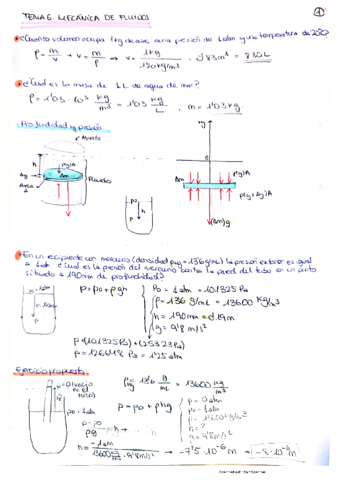 TEMA 6. MECÁNICA DE FLUIDOS
1
¿Cuánto volumen ocupa 1kg de aire a una presión de 1atm y una temperatura de 20°C?
ρ = m/v → v = m/ρ → v = 1kg / 1'20kg/m³ = 0'83m³ = 830L
¿Cuál es la masa de 1L de agua de mar?
ρ = 1'03·10³ kg/m³ = 1'03 kg/L , m = 1'03kg.
Profundidad y presión
Abierto
h
Δy
Área A
Δm
p(y)A
Fluido
p₀
h
p
y
0
p(y)A
Δm
p(y+Δy)A
(Δm)g
En un recipiente con mercurio (densidad ρHg = 13'6g/mL) la presión exterior es igual
a 1atm ¿Cuál es la presión del mercurio contra la pared del tubo en un punto
situado a 190mm de profundidad?
p = p₀ + ρgh
p₀ = 1atm = 101325 Pa
ρ = 13'6 g/mL = 13600 kg/m³
h = 190mm = 0'19m
g = 9'8 m/s²
p = (101325 Pa) + (25323 Pa)
p = 126648 Pa = 1'25 atm
Ejercicio propuesto
p₀ = 1atm
ρHg = 13'6 g/mL = 13600 kg/m³
p = p₀ + ρhg
p = 0atm
p₀ = 1atm
ρ = 13600 kg/m³
h = ?
g = 9'8 m/s²
p - p₀ / ρg = h
-1atm / 13600 kg/m³ · 9'8 m/s² → -7'5·10⁻⁶ m → -8·10⁻⁶ m